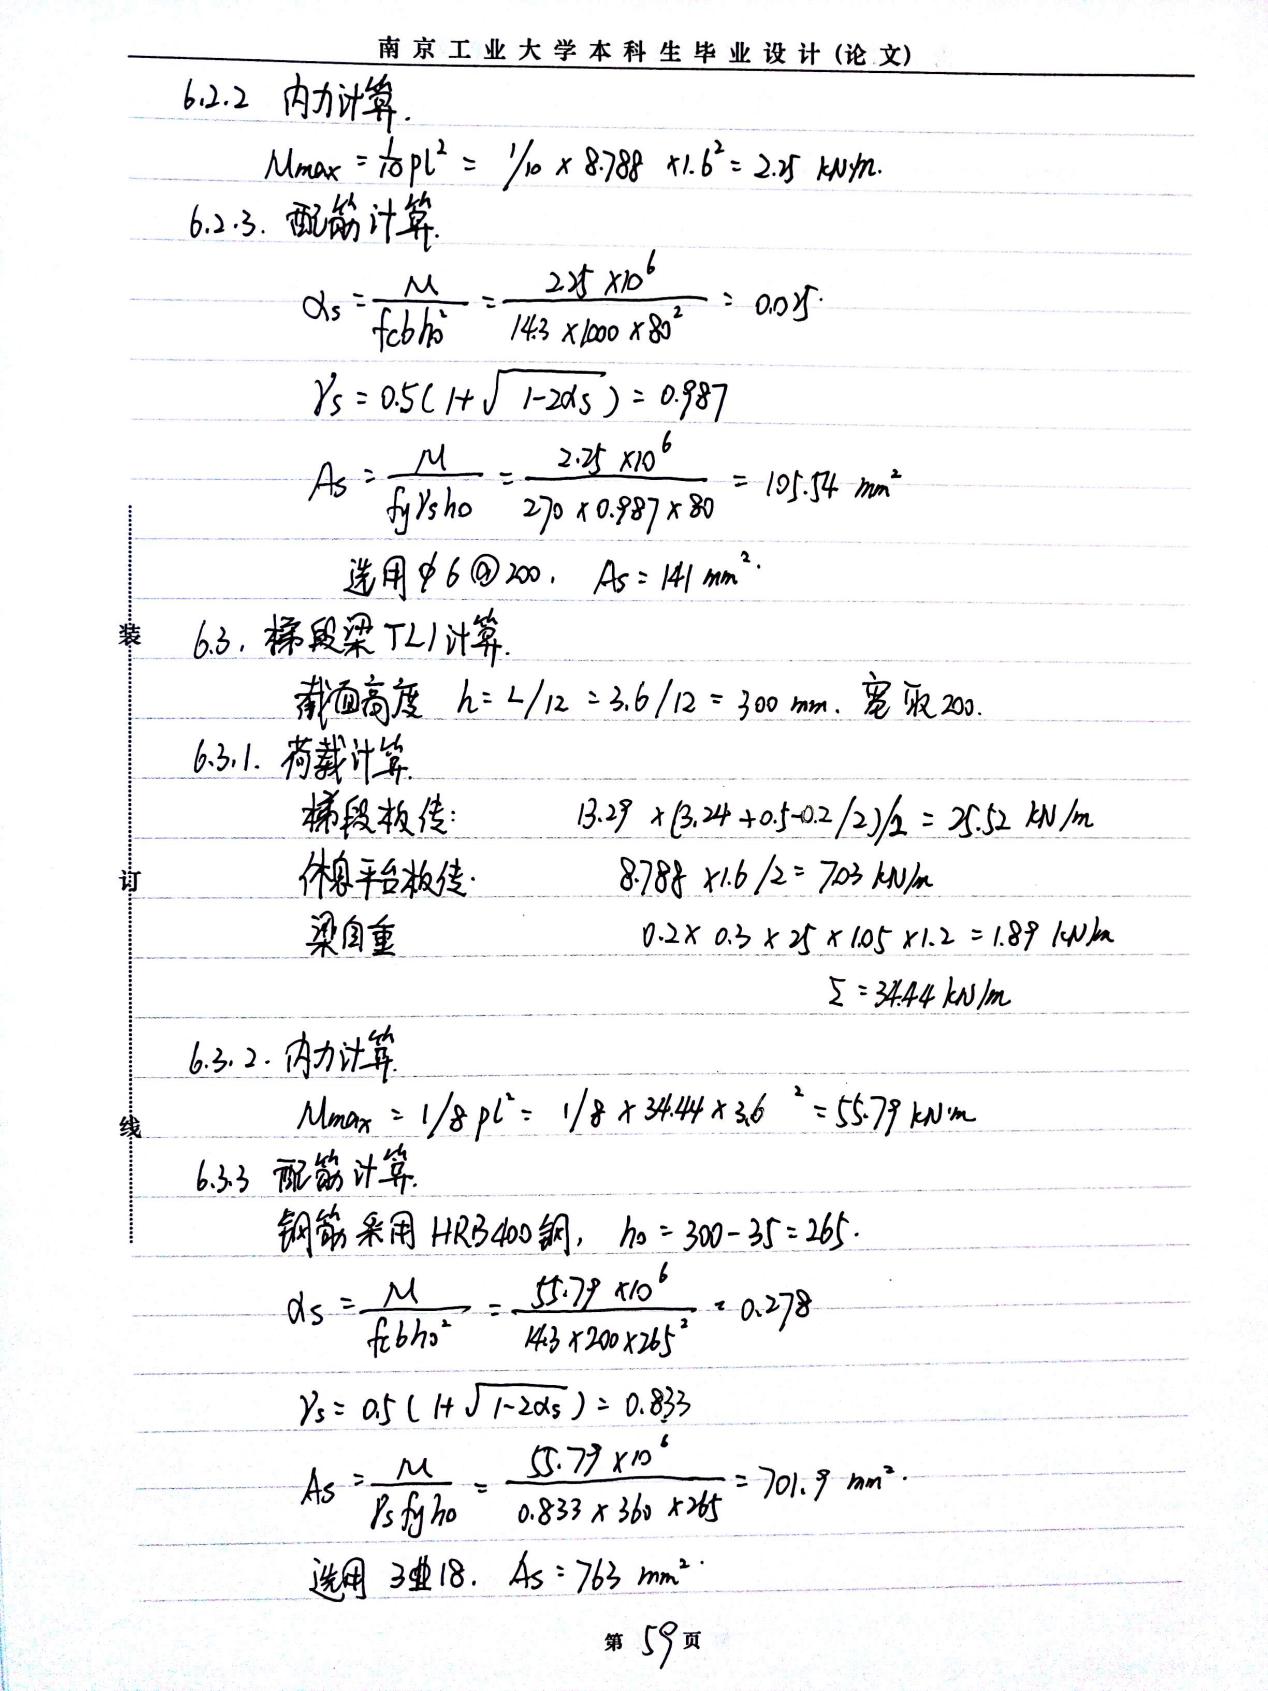 南京工业大学本科生毕业设计(论文)
6.2.2 内力计算.
Mmax = 1/10 pl² = 1/10 × 8.788 ×1.6² = 2.25 kN·m.
6.2.3. 配筋计算.
αs = M/(fcbh0²) = 2.25 ×10⁶/(14.3 ×1000 ×80²) = 0.025.
γs = 0.5(1+√(1-2αs)) = 0.987
As = M/(fyγsh0) = 2.25 ×10⁶/(270 ×0.987×80) = 105.54 mm²
选用ϕ6@200. As = 141 mm².
装
6.3. 梯段梁TL1计算.
截面高度 h = L/12 = 3.6/12 = 300 mm. 宽取200.
6.3.1. 荷载计算.
梯段板传: 13.29 ×(3.24+0.5-0.2/2)/2 = 25.52 kN/m
订
休息平台板传. 8.788 ×1.6/2 = 7.03 kN/m
梁自重 0.2× 0.3 × 25 × 1.05 ×1.2 = 1.89 kN/m
Σ = 34.44 kN/m
6.3.2. 内力计算.
线
Mmax = 1/8 pl² = 1/8 × 34.44 × 3.6² = 55.79 kN·m
6.3.3 配筋计算.
钢筋采用HRB400钢, h0 = 300-35 = 265.
αs = M/(fcbh0²) = 55.79 ×10⁶/(14.3×200×265²) = 0.278
γs = 0.5(1+√(1-2αs)) = 0.833
As = M/(γsfyh0) = 55.79 ×10⁶/(0.833 × 360 ×265) = 701.9 mm².
选用 3⏀18. As = 763 mm².
第59页